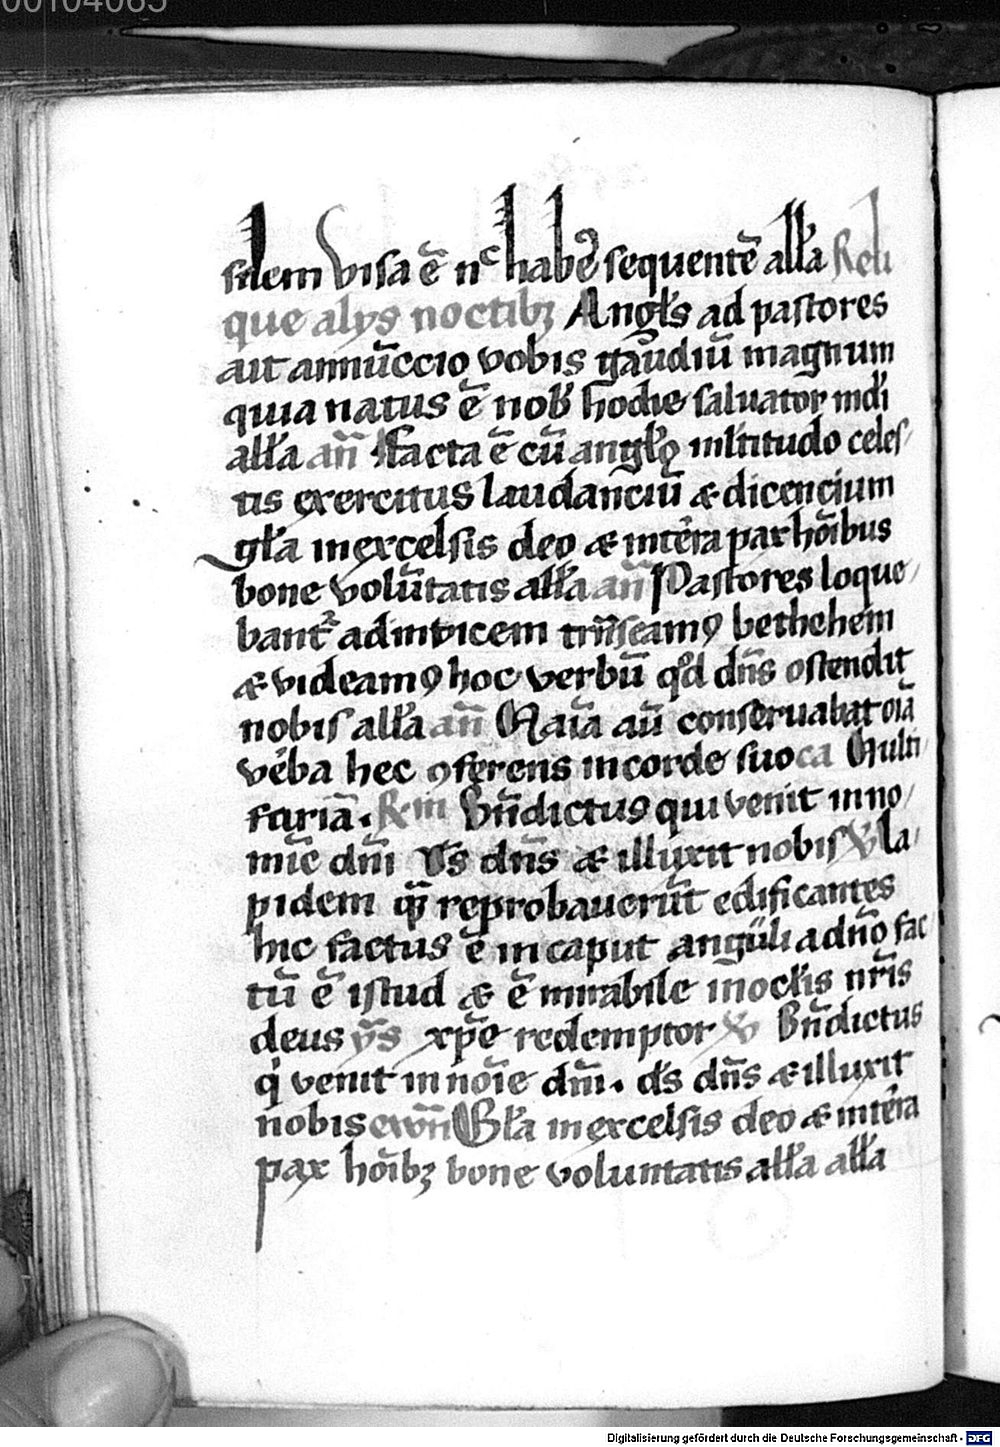 00104065
silem visa ē nc̄ haber̄ sequentē all'a Reli
que alijs noctibꝫ Angl's ad pastores
ait annūccio vobis gaudiū magnum
quia natus ē nob' hodie saluator mdi
all'a añ facta ē cū anglꝝ ml'titudo celes
tis exercitus laudanciū & dicencium
gl'a in excelsis deo & in terra pax hōibus
bone volūtatis all'a añ Pastores loque
bant adinvicem trāseamꝯ bethehem
& videamꝯ hoc verbū qd dn̄s ostendit
nobis all'a añ Maīa aū conseruabat oīa
vēba hec ꝯferens in corde suo ca Multi
fariā. R̄ in Bn̄dictus qui venit in no
mīe dn̄i Ds dn̄s & illuxit nobis V La
pidem qē reprobauerūt edificantes
hic factus ē in caput anguli a dn̄o fac
tū ē istud & ē mirabile in ocl'is nr̄is
deus ys xp̄e redemptor V Bn̄dictus
q' venit in nōie dn̄i. ds dn̄s & illuxit
nobis ewn̄ Gl'a in excelsis deo & in terra
pax hōibꝫ bone voluntatis all'a all'a
Digitalisierung gefördert durch die Deutsche Forschungsgemeinschaft - DFG